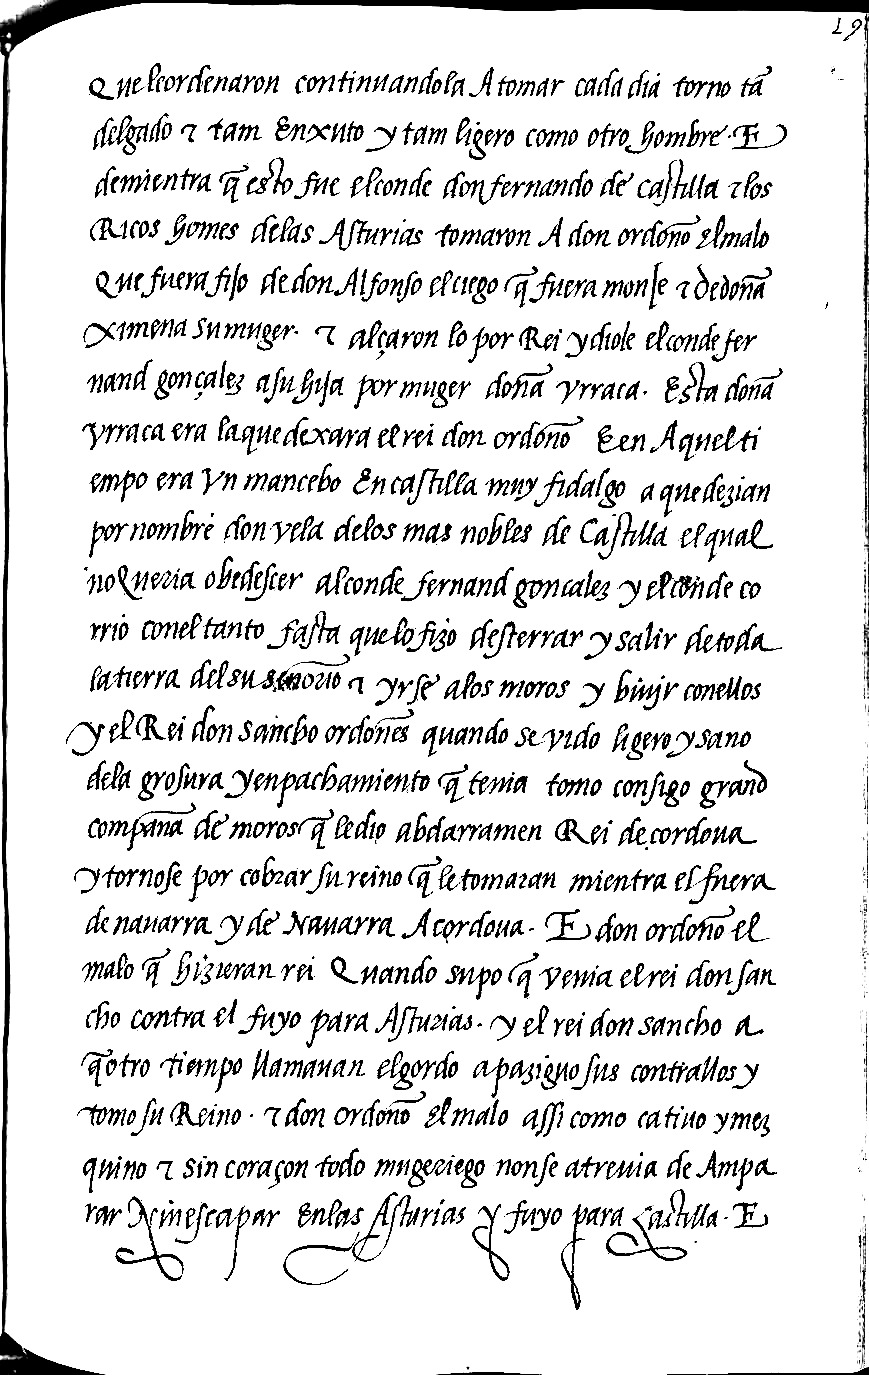 19
Que le ordenaron continuandola A tomar cada dia torno tã
delgado ⁊ tam Enxuto y tam ligero como otro hombre. E
demientra q̃ esto fue el conde don fernando de castilla ⁊ los
Ricos homes de las Asturias tomaron A don ordoño El malo
Que fuera fijo de don Alfonso el ciego q̃ fuera monje ⁊ de doña
Ximena su muger. ⁊ alçaron lo por Rei y diole el conde fer
nand gonçalez a su hija por muger doña Yrraca. Esta doña
Yrraca era la que dexara el rei don ordoño E en Aquel ti
empo era Vn mancebo En castilla muy fidalgo a que dezian
por nombre don vela de los mas nobles de Castilla el qual
no Queria obedescer al conde fernand goncalez y el conde co
rrio con el tanto fasta que lo fizo desterrar y salir de toda
la tierra del su señorio ⁊ yrse a los moros y biuir con ellos
y el Rei don sancho ordoñes quando se vido ligero y sano
de la grosura y enpachamiento q̃ tenia tomo consigo grand
compaña de moros q̃ le dio abdarramen Rei de cordoua
y tornose por cobrar su reino q̃ le tomaran mientra el fuera
de nauarra y de Nauarra A cordoua. E don ordoño el
malo q̃ hizieran rei Quando supo q̃ venia el rei don san
cho contra el fuyo para Asturias. y el rei don sancho a
q̃ otro tiempo llamauan el gordo apaziguo sus contrallos y
tomo su Reino. ⁊ don ordoño El malo assi como catiuo y mez
quino ⁊ sin coraçon todo mugeriego non se atreuia de Ampa
rar Nin escapar En las Asturias y fuyo para Castilla. E